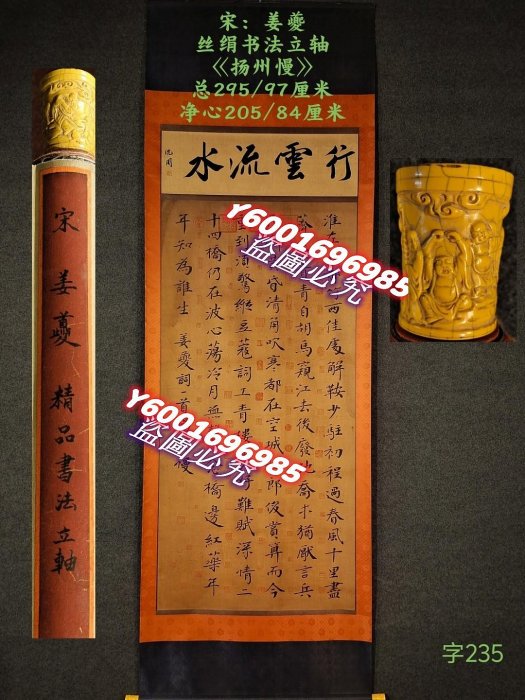 宋：姜夔
丝绢书法立轴
《扬州慢》
总295/97厘米
净心205/84厘米
宋 姜夔 精品書法立軸
行雲流水
淮 西佳處解鞍少駐初程過春風十里盡
青自胡馬窺江去後廢 喬木猶厭言兵
昏清角吹寒都在空城 郎俊賞算而今
到須驚縱豆蔻詞工青樓 難賦深情二
十四橋仍在波心蕩冷月無 橋邊紅藥年
年知為誰生 姜夔詞一首 慢
Y6001696985
盜圖必究
Y6001696985
盜圖必究
字235